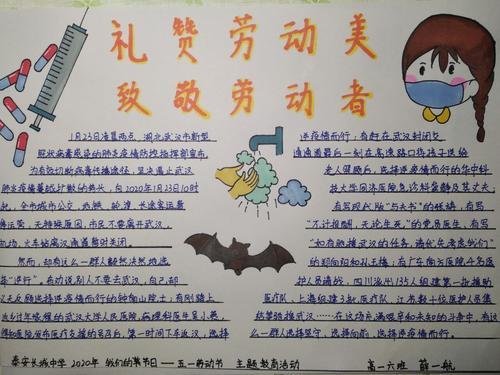 礼赞劳动美
致敬劳动者
1月23日凌晨两点,湖北武汉市新型
冠状病毒感染的肺炎疫情防控指挥部宣布
为有效切断病毒传播途径,坚决遏止武汉
肺炎疫情蔓延扩散的势头,自2020年1月23日10时
起,全市城市公交、地铁、轮渡、长途客运暂
停运营,无特殊原因,市民不要离开武汉,
机场、火车站离汉通道暂时关闭。
然而,却有这一群人毅然决然地选
择"逆行"。有劝说别人不要去武汉,自己却
义无反顾选择逆疫情而行的钟南山院士;有刚踏上
返乡过年旅程的武汉大学人民医院
得知医院发布医疗支援的召集后,第一时间下车返汉,选择
逆疫情而行;有赶在武汉封闭交
通通道最后一刻在高速路口将孩子送给
老人照顾后,选择逆疫情而行的华中科
技大学同济医院急诊科
有写现代版"与夫书"的张旃,有写
"不计报酬,无论生死"的党员医生,有写
"如有驰援武汉的任务,请优先考虑我们"
的郑向阳和孙玉楼;有广东南方医院4年医
护人员请战,四川派出135人组建第一批援助
医疗队,上海组建3批医疗队,江苏数十位医护人员集
结等驰援武汉……在这场充满艰辛和未知的斗争中,有这
么一群人选择坚守,选择向前,选择逆疫情而行。
泰安长城中学 2020年 我们的美节日——五一劳动节 主题教育活动 高一六班 薛一航